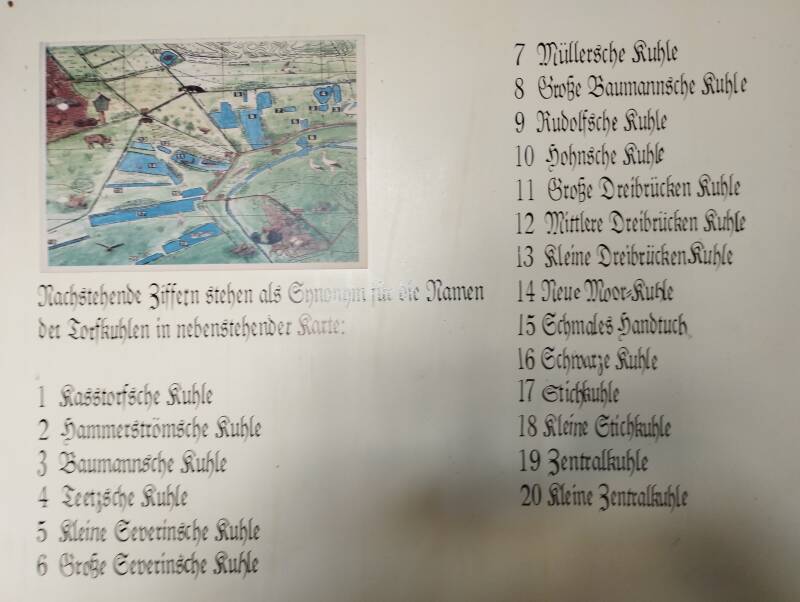 Nachstehende Ziffern stehen als Synonym für die Namen
der Torfkuhlen in nebenstehender Karte:
1 Kasstorfsche Kuhle
2 Hammerströmsche Kuhle
3 Baumannsche Kuhle
4 Teetzsche Kuhle
5 Kleine Severinsche Kuhle
6 Große Severinsche Kuhle
7 Müllersche Kuhle
8 Große Baumannsche Kuhle
9 Rudolfsche Kuhle
10 Hohnsche Kuhle
11 Große Dreibrücken Kuhle
12 Mittlere Dreibrücken Kuhle
13 Kleine Dreibrücken Kuhle
14 Neue Moor-Kuhle
15 Schmales Handtuch
16 Schwarze Kuhle
17 Stichkuhle
18 Kleine Stichkuhle
19 Zentralkuhle
20 Kleine Zentralkuhle